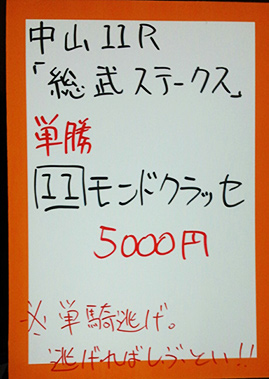 中山11R
「総武ステークス」
単勝
11モンドクラッセ
5000円
※単騎逃げ。
逃げればしぶとい!!